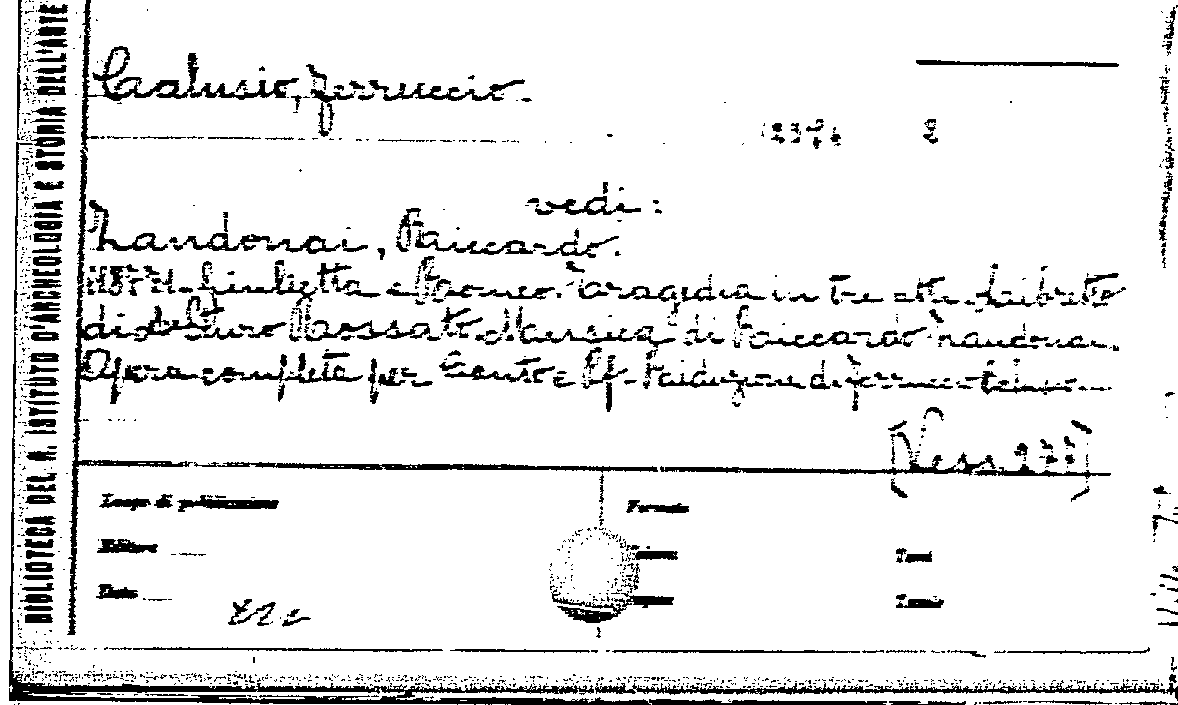 BIBLIOTECA DEL R. ISTITUTO D'ARCHEOLOGIA E STORIA DELL'ARTE
Calusio, Ferruccio.
2
vedi:
Zandonai, Riccardo.
Giulietta e Romeo. Tragedia in tre atti. Libretto
di Arturo Rossato. Musica di Riccardo Zandonai.
Opera completa per Canto e Pf. Riduzione di Ferruccio
[Vess. 277]
Luogo di pubblicazione
Formato
Editore
Tomi
Data